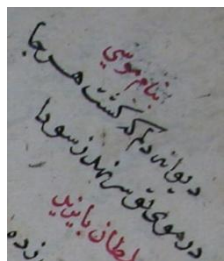 بنام موسی
دیوانه دلم که گشت هر جا
در موی تو سر نهد ز سودا
سلطان بایزید